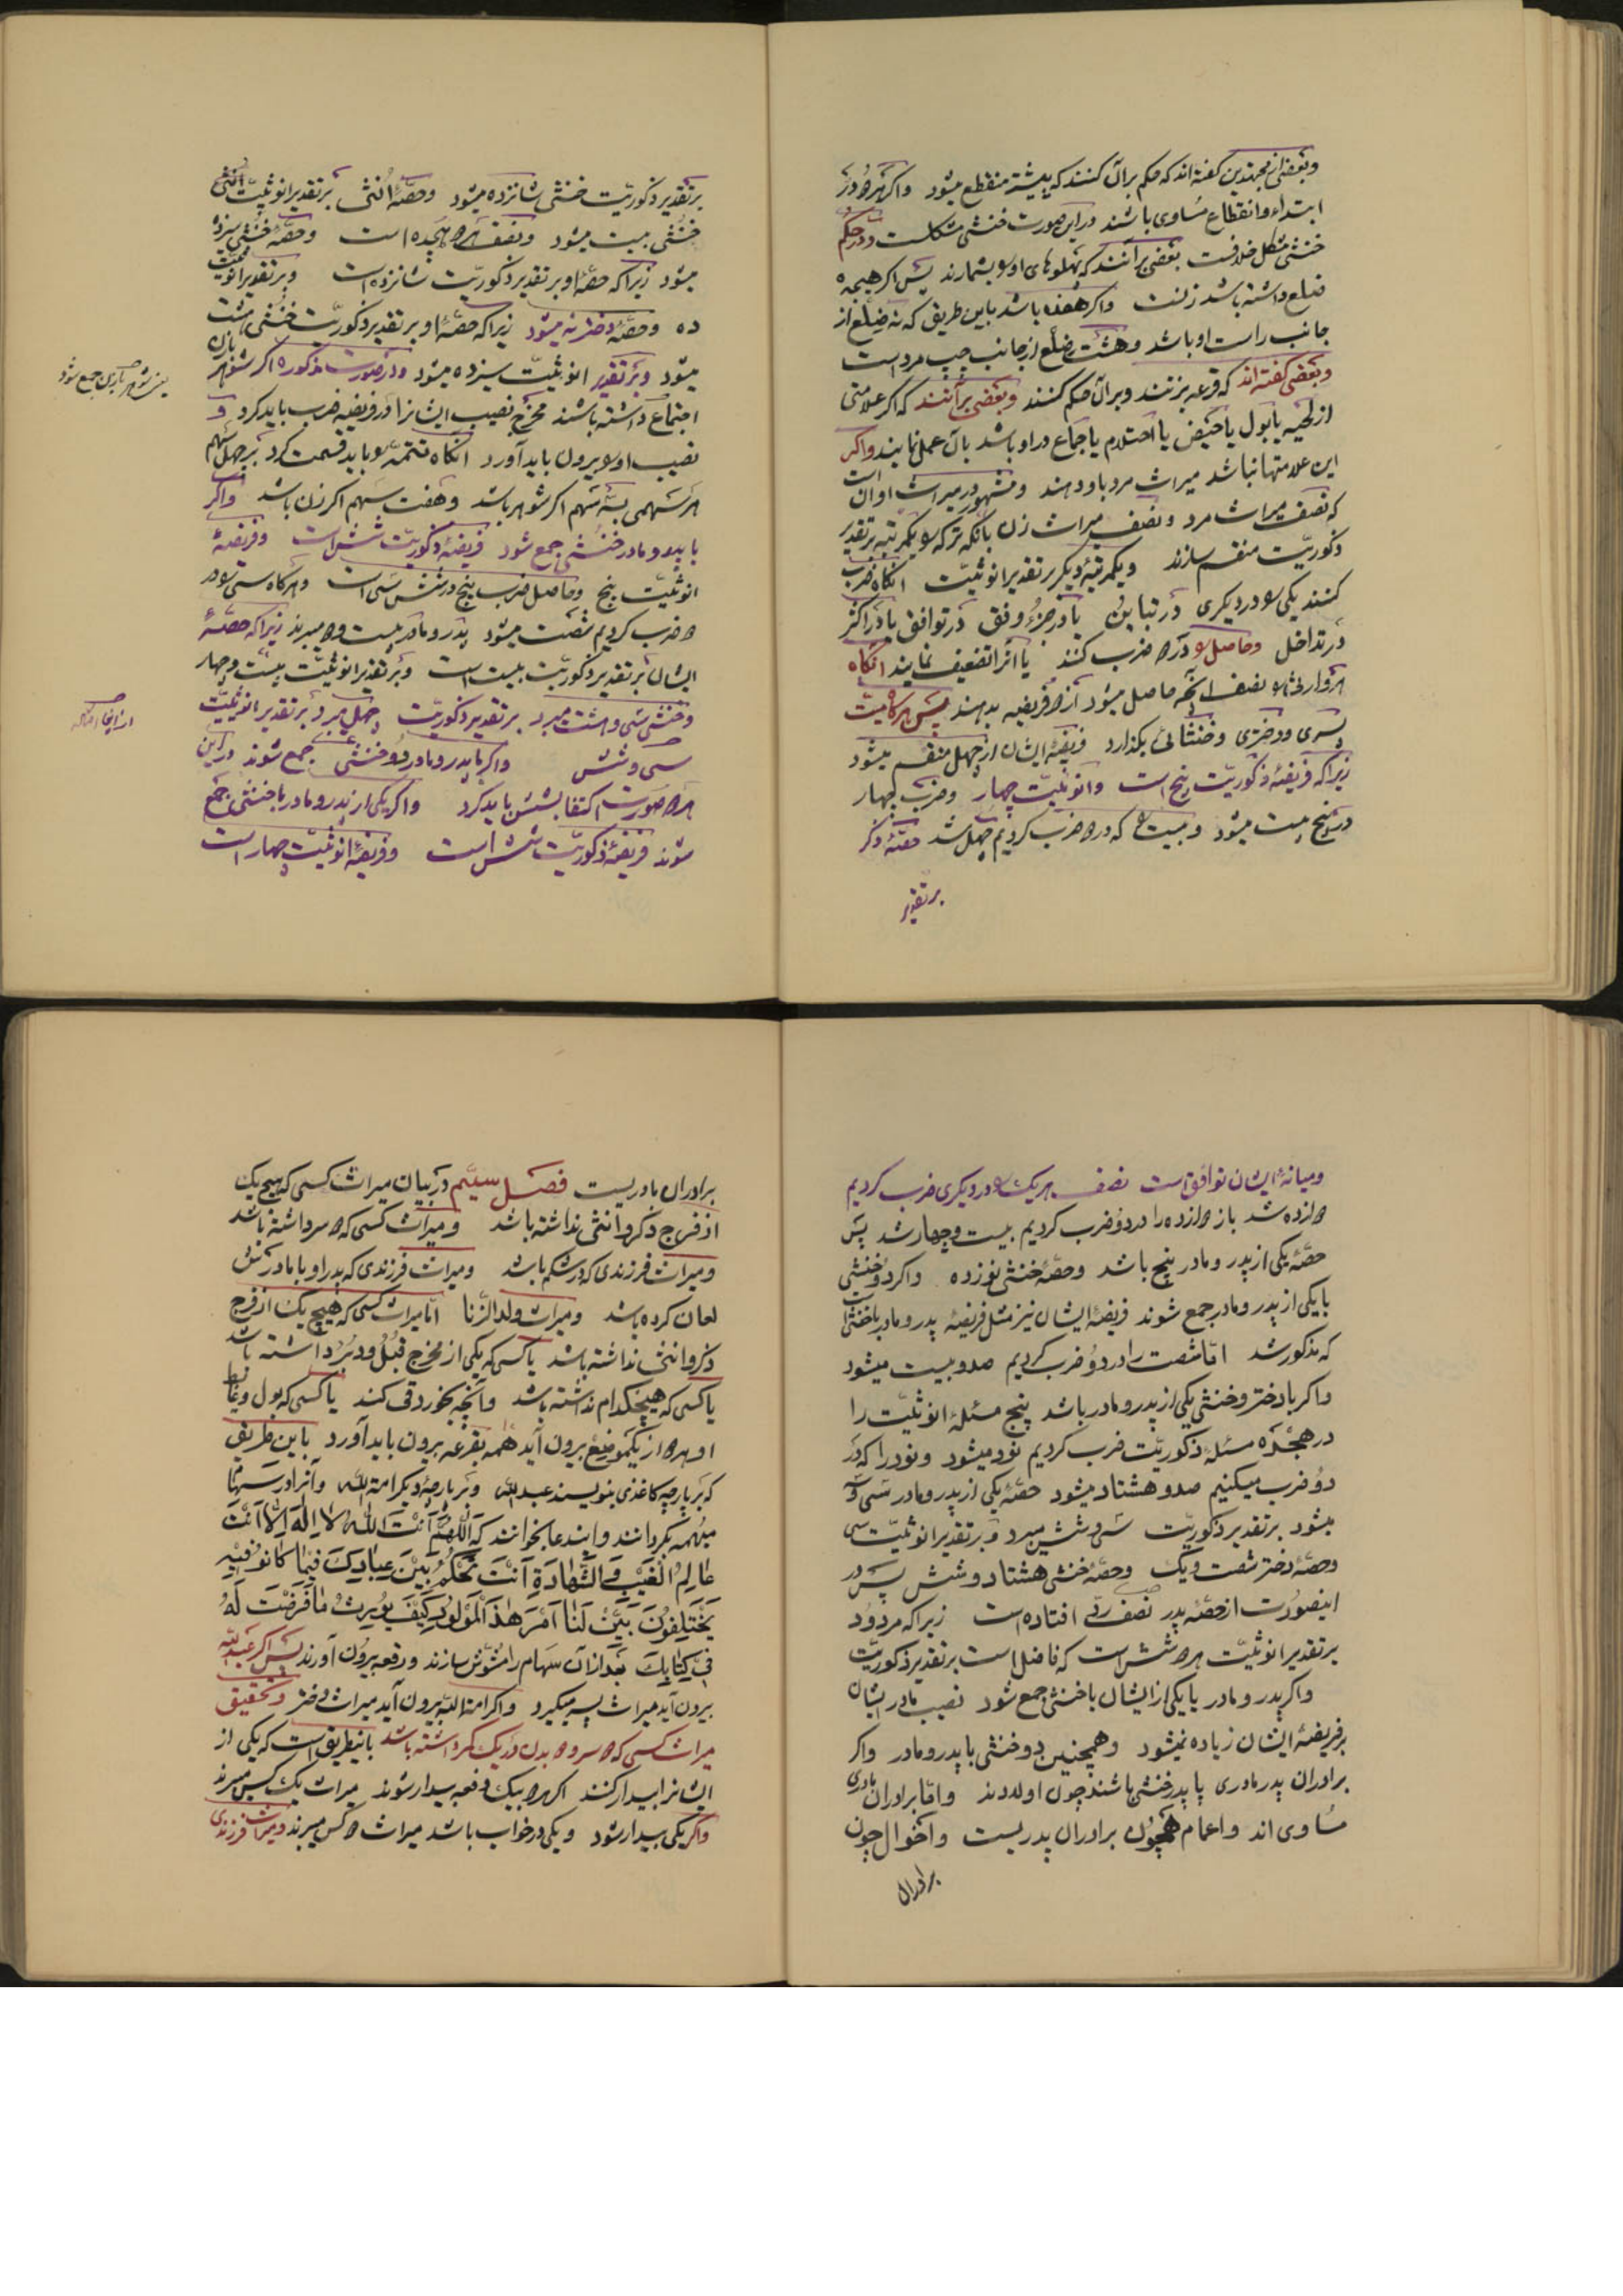 وبعضی از مجتهدین گفته‌اند که حکم بر آن کنند که پیشتر منقطع میشود واگر هردو در
ابتداء وانقطاع مساوی باشند دراین صورت خنثی مشکلست ودر حکم
خنثی مشکل خلافست بعضی برآنند که پهلوهای اورا بشمارند پس اگر هیجده
ضلع داشته باشد زنست واگر هفده باشد باین طریق که نه ضلع از
جانب راست او باشد وهشت ضلع از جانب چپ مرد است
وبعضی گفته‌اند که قرعه بزنند وبرآن حکم کنند وبعضی برآنند که اگر علامتی
از لحیه یا بول یا حیض یا احتلام یا جماع در او باشد بآن عمل نمایند واگر
این علامتها نباشد میراث مرد باو دهند ومشهور در میراث او آن است
که نصف میراث مرد ونصف میراث زن بآنکه ترکه را یکمرتبه بر تقدیر
ذکوریّت منقسم سازند ویکمرتبهٔ دیگر بر تقدیر انوثیّت آنگاه ضرب
کنند یکی را در دیگری در تباین یا در جزؤ وفق در توافق یا در اکثر
در تداخل وحاصل را در ۲ ضرب کنند یا آنرا تضعیف نمایند آنگاه
هر وارثی را نصف آنچه حاصل میشود از ۲ فریضه بدهند پس هرگاه میّت
پسری ودختری وخنثائی بگذارد فریضهٔ ایشان از چهل منقسم میشود
زیرا که فریضهٔ ذکوریّت پنج است وانوثیّت چهار وضرب چهار
در پنج بیست میشود وبیست را که در ۲ ضرب کردیم چهل شد حصّهٔ ذکر
بر تقدیر
بر تقدیر ذکوریّت خنثی شانزده میشود وحصّهٔ اُنثی بر تقدیر انوثیّت
خنثی بیست میشود ونصف هر ۲ هیجده است وحصّهٔ خنثی سیزده
میشود زیرا که حصّهٔ او بر تقدیر ذکوریّت شانزده است وبر تقدیر انوثیّت
ده وحصّهٔ دختر نه میشود زیرا که حصّهٔ او بر تقدیر ذکوریّت خنثی هشت
میشود وبر تقدیر انوثیّت سیزده میشود ودر صورت مذکوره اگر شوهر یا زن
اجتماع داشته باشند مخرج نصیب ایشانرا در فریضه ضرب باید کرد و
نصیب اورا بیرون باید آورد آنگاه تتمّه را باید قسمت کرد بر چهل سهم
هر سهمی بسه سهم اگر شوهر باشد وهفت سهم اگر زن باشد واگر
با پدر ومادر خنثی جمع شود فریضهٔ ذکوریّت شش است وفریضهٔ
انوثیّت پنج وحاصل ضرب پنج در شش سی است وهرگاه سی را در
۲ ضرب کردیم شصت میشود پدر ومادر بیست و۲ میبرند زیرا که حصّهٔ
ایشان بر تقدیر ذکوریّت بیست است وبر تقدیر انوثیّت بیست وچهار
وخنثی سی وهشت میبرد بر تقدیر ذکوریّت چهل میبرد وبر تقدیر انوثیّت
سی وشش واگر با پدر ومادر دو خنثی جمع شوند دراین
هر ۲ صورت اکتفا بشش باید کرد واگر یکی از پدر ومادر با خنثی جمع
شوند فریضهٔ ذکوریّت شش است وفریضهٔ انوثیّت چهار است
ومیانهٔ ایشان توافق است نصف هریک را در دیگری ضرب کردیم
۲ازده شد باز ۲ازده را در دو ضرب کردیم بیست وچهار شد پس
حصّهٔ یکی از پدر ومادر پنج باشد وحصّهٔ خنثی نوزده واگر دو خنثی
با یکی از پدر ومادر جمع شوند فریضهٔ ایشان نیز مثل فریضهٔ پدر ومادر با خنثی است
که مذکور شد امّا شصت را در دو ضرب کردیم صد وبیست میشود
واگر با دختر وخنثی یکی از پدر ومادر باشد پنج مسئلهٔ انوثیّت را
در هجده مسئلهٔ ذکوریّت ضرب کردیم نود میشود ونود را که در
دو ضرب میکنیم صد وهشتاد میشود حصّهٔ یکی از پدر ومادر سی وسه
میشود بر تقدیر ذکوریّت سی وشش میبرد وبر تقدیر انوثیّت سی
وحصّهٔ دختر شصت ویک وحصّهٔ خنثی هشتاد وشش پس در
اینصورت از حصّهٔ پدر نصف ردّ افتاده است زیرا که مردود
بر تقدیر انوثیّت هر ۲ شش است که فاضل است بر تقدیر ذکوریّت
واگر پدر ومادر یا یکی از ایشان با خنثی جمع شود نصیب مادر ایشان
بر فریضهٔ ایشان زیاده نمیشود وهمچنین دو خنثی با پدر ومادر واگر
برادران پدر مادری یا پدر خنثی باشند چون اولادند وامّا برادران مادری
مساوی‌اند واعمام همچون برادران پدریست واخوال چون
برادران
برادران مادریست فصل سیّم در بیان میراث کسی که هیچ یک
از فرج ذکر وانثی نداشته باشد ومیراث کسی که ۲ سر داشته باشد
ومیراث فرزندی که در شکم باشد ومیراث فرزندی که پدر او با مادرش
لعان کرده باشد ومیراث ولد الزّنا امّا میراث کسی که هیچ یک از فرج
ذکر وانثی نداشته باشد یا کسی که یکی از مخرج قُبُل ودُبُر داشته باشد
یا کسی که هیچکدام نداشته باشد وآنچه بخورد قی کند یا کسی که بول وغایط
او هر ۲ از یکموضع بیرون آید همه بقرعه بیرون باید آورد باین طریق
که بر پارچه کاغذی بنویسند عبد اللّه وبر پارچهٔ دیگر امة اللّه وآنرا در سهمهای
مبهمه بگردانند واین دعا بخوانند که اَللّهُمَّ اَنْتَ اللّهُ لا اِلهَ اِلاّ اَنْتَ
عالِمُ الْغَیْبِ وَ الشَّهادَةِ اَنْتَ تَحْکُمُ بَیْنَ عِبادِکَ فیما کانُوا فیهِ
یَخْتَلِفُونَ بَیِّنْ لَنا اَمْرَ هذَا الْمَوْلُودِ کَیْفَ یُورَثُ ما فَرَضْتَ لَهُ
فی کِتابِکَ بعد از آن سهام را مشوّش سازند ورقعه بیرون آورند پس اگر عبد اللّه
بیرون آید میراث پسر میگیرد واگر امة اللّه بیرون آید میراث دختر وتحقیق
میراث کسی که ۲ سر و۲ بدن در یک کمر داشته باشد باینطریق است که یکی از
ایشانرا بیدار کنند اگر هر ۲ بیک دفعه بیدار شوند میراث یک کس میبرند
واگر یکی بیدار شود ویکی در خواب باشد میراث ۲ کس میبرند ومیراث فرزندی